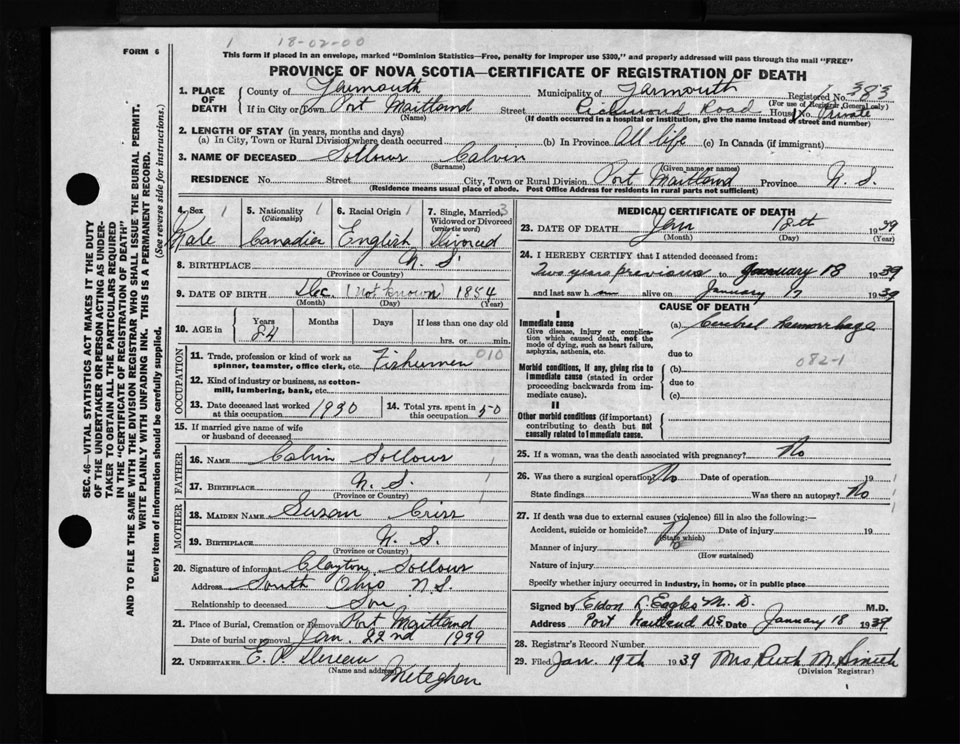 1 18-02-00
FORM 6
This form if placed in an envelope, marked "Dominion Statistics—Free, penalty for improper use $300," and properly addressed will pass through the mail "FREE"
PROVINCE OF NOVA SCOTIA—CERTIFICATE OF REGISTRATION OF DEATH
1. PLACE OF DEATH County of Yarmouth Municipality of Yarmouth Registered No. 383
(For use of Registrar General only)
If in City or Town Port Maitland Street Richmond Road House No. Private
(Name) (If death occurred in a hospital or institution, give the name instead of street and number)
2. LENGTH OF STAY (in years, months and days)
(a) In City, Town or Rural Division where death occurred (b) In Province All life (c) In Canada (if immigrant)
3. NAME OF DECEASED Sollows Calvin
(Surname) (Given name or names)
RESIDENCE No. Street City, Town or Rural Division Port Maitland Province N. S.
(Residence means usual place of abode. Post Office Address for residents in rural parts not sufficient)
SEC. 46—VITAL STATISTICS ACT MAKES IT THE DUTY
OF THE UNDERTAKER OR PERSON ACTING AS UNDER-
TAKER TO OBTAIN ALL THE PARTICULARS REQUIRED
IN THE "CERTIFICATE OF REGISTRATION OF DEATH"
AND TO FILE THE SAME WITH THE DIVISION REGISTRAR WHO SHALL ISSUE THE BURIAL PERMIT.
WRITE PLAINLY WITH UNFADING INK. THIS IS A PERMANENT RECORD.
Every item of information should be carefully supplied. (See reverse side for instructions.)
4. Sex 1 5. Nationality 1 6. Racial Origin 1 7. Single, Married, 3
(Citizenship) Widowed or Divorced
(write the word)
Male Canadian English Divorced
8. BIRTHPLACE N. S.
(Province or Country)
9. DATE OF BIRTH Dec. (not known) 1854
(Month) (Day) (Year)
10. AGE in Years Months Days If less than one day old
84 hrs. or min.
OCCUPATION
11. Trade, profession or kind of work as
spinner, teamster, office clerk, etc. Fisherman 010
12. Kind of industry or business, as cotton-
mill, lumbering, bank, etc.
13. Date deceased last worked
at this occupation 1930
14. Total yrs. spent in
this occupation 50
15. If married give name of wife
or husband of deceased
FATHER
16. Name Calvin Sollows 1
17. Birthplace N. S. 1
(Province or Country)
MOTHER
18. Maiden Name Susan
19. Birthplace N. S.
(Province or Country)
20. Signature of informant Clayton Sollows
Address South Ohio N.S.
Relationship to deceased Son
21. Place of Burial, Cremation or Removal Port Maitland
Date of burial or removal Jan. 22nd 1939
22. UNDERTAKER E. P.
(Name and address) Meteghan
MEDICAL CERTIFICATE OF DEATH
23. DATE OF DEATH Jan 18th 1939
(Month) (Day) (Year)
24. I HEREBY CERTIFY that I attended deceased from:
Two years previous to January 18 1939
and last saw h alive on January 17 1939
CAUSE OF DEATH
I
Immediate cause
Give disease, injury or complica-
tion which caused death, not the
mode of dying, such as heart failure,
asphyxia, asthenia, etc.
(a) Cerebral hemorrhage
due to 082-1
Morbid conditions, if any, giving rise to
immediate cause (stated in order
proceeding backwards from im-
mediate cause).
(b)
due to
(c)
II
Other morbid conditions (if important)
contributing to death but not
causally related to immediate cause.
25. If a woman, was the death associated with pregnancy? No
26. Was there a surgical operation? No Date of operation 19
State findings Was there an autopsy? No
27. If death was due to external causes (violence) fill in also the following:—
Accident, suicide or homicide? No Date of injury 19
(State which)
Manner of injury
(How sustained)
Nature of injury
Specify whether injury occurred in industry, in home, or in public place
Signed by Eldon R. Eagles M. D. M.D.
Address Port Maitland N.S. Date January 18 1939
28. Registrar's Record Number
29. Filed Jan. 19th 1939 Mrs Ruth M. Smith
(Division Registrar)